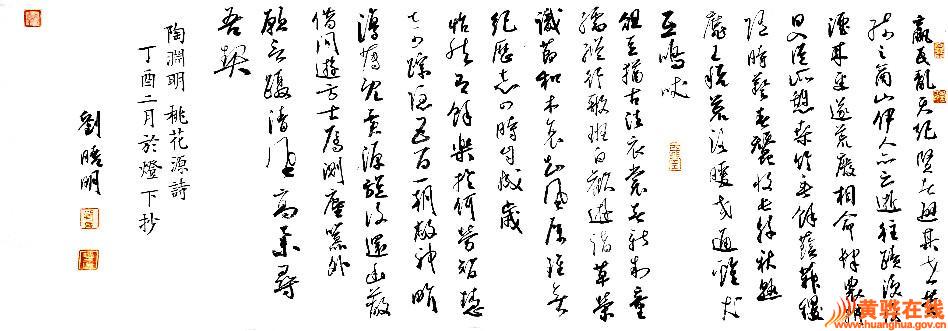 嬴氏亂天紀賢者避其世黃
綺之商山伊人亦云逝往跡浸復
湮來逕遂蕪廢相命肆農耕
日入從所憩桑竹垂餘蔭菽稷
隨時藝春蠶收長絲秋熟
靡王稅荒路曖交通雞犬
互鳴吠
俎豆猶古法衣裳無新制童
孺縱行歌班白歡遊詣草榮
識節和木衰知風厲雖無
紀歷志四時自成歲
怡然有餘樂於何勞智慧
奇蹤隱五百一朝敞神界
淳薄既異源旋復還幽蔽
借問遊方士焉測塵囂外
願言躡清風高舉尋
吾契
陶淵明桃花源詩
丁酉二月於燈下抄
劉曉明
黄骅在线
www.huanghua.gov.cn